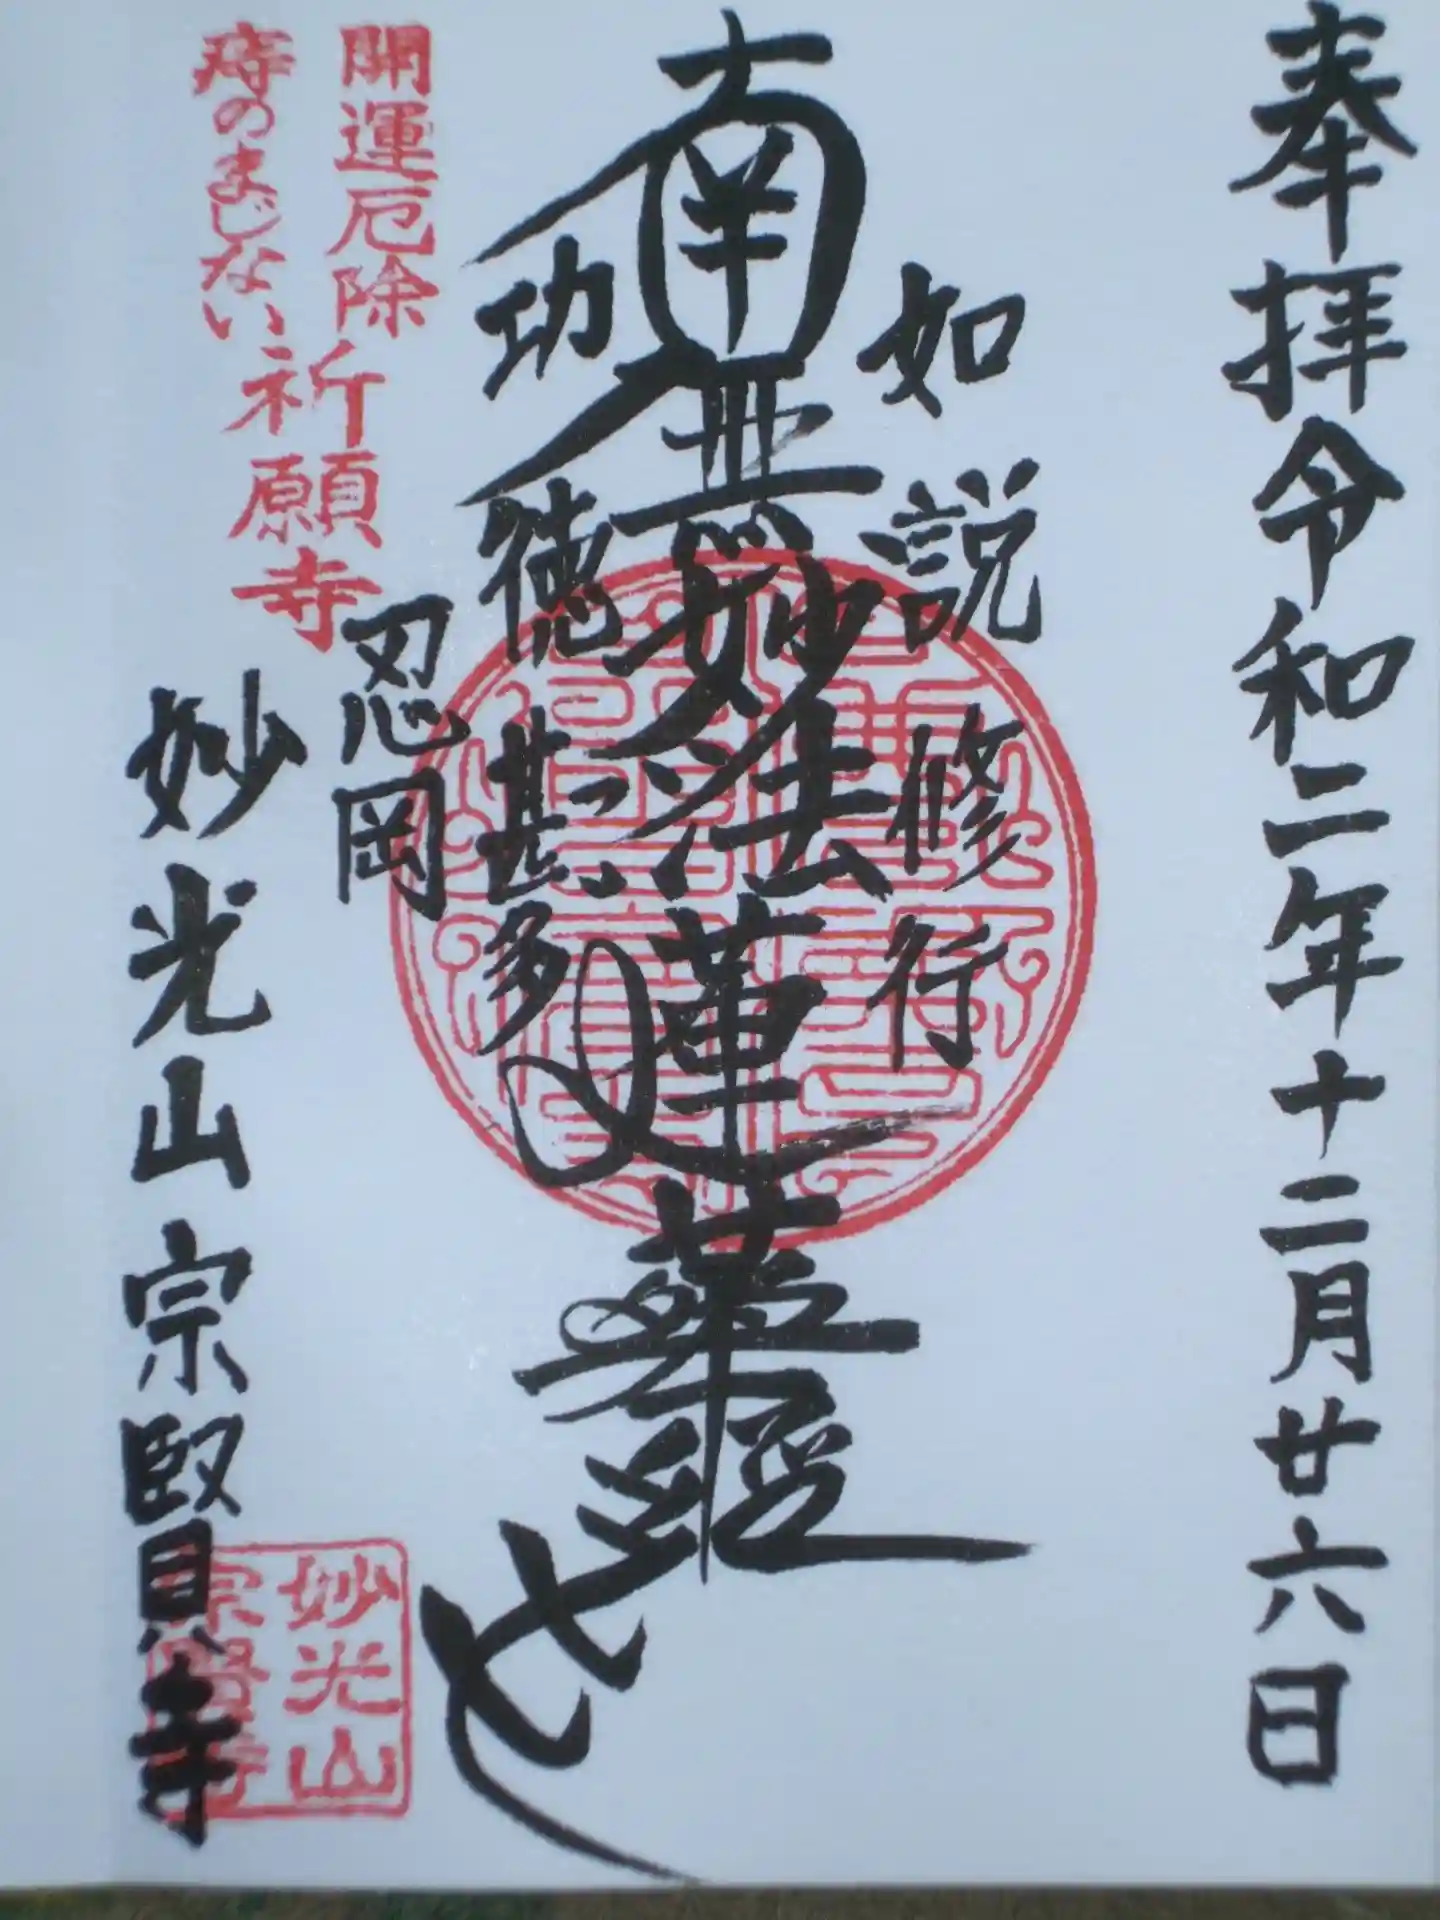 奉拝令和二年十二月廿六日
如説修行
南無妙法蓮華経
功徳甚多
忍岡
開運厄除
痔のまじない
祈願寺
妙光山宗賢寺
妙光山
宗賢寺